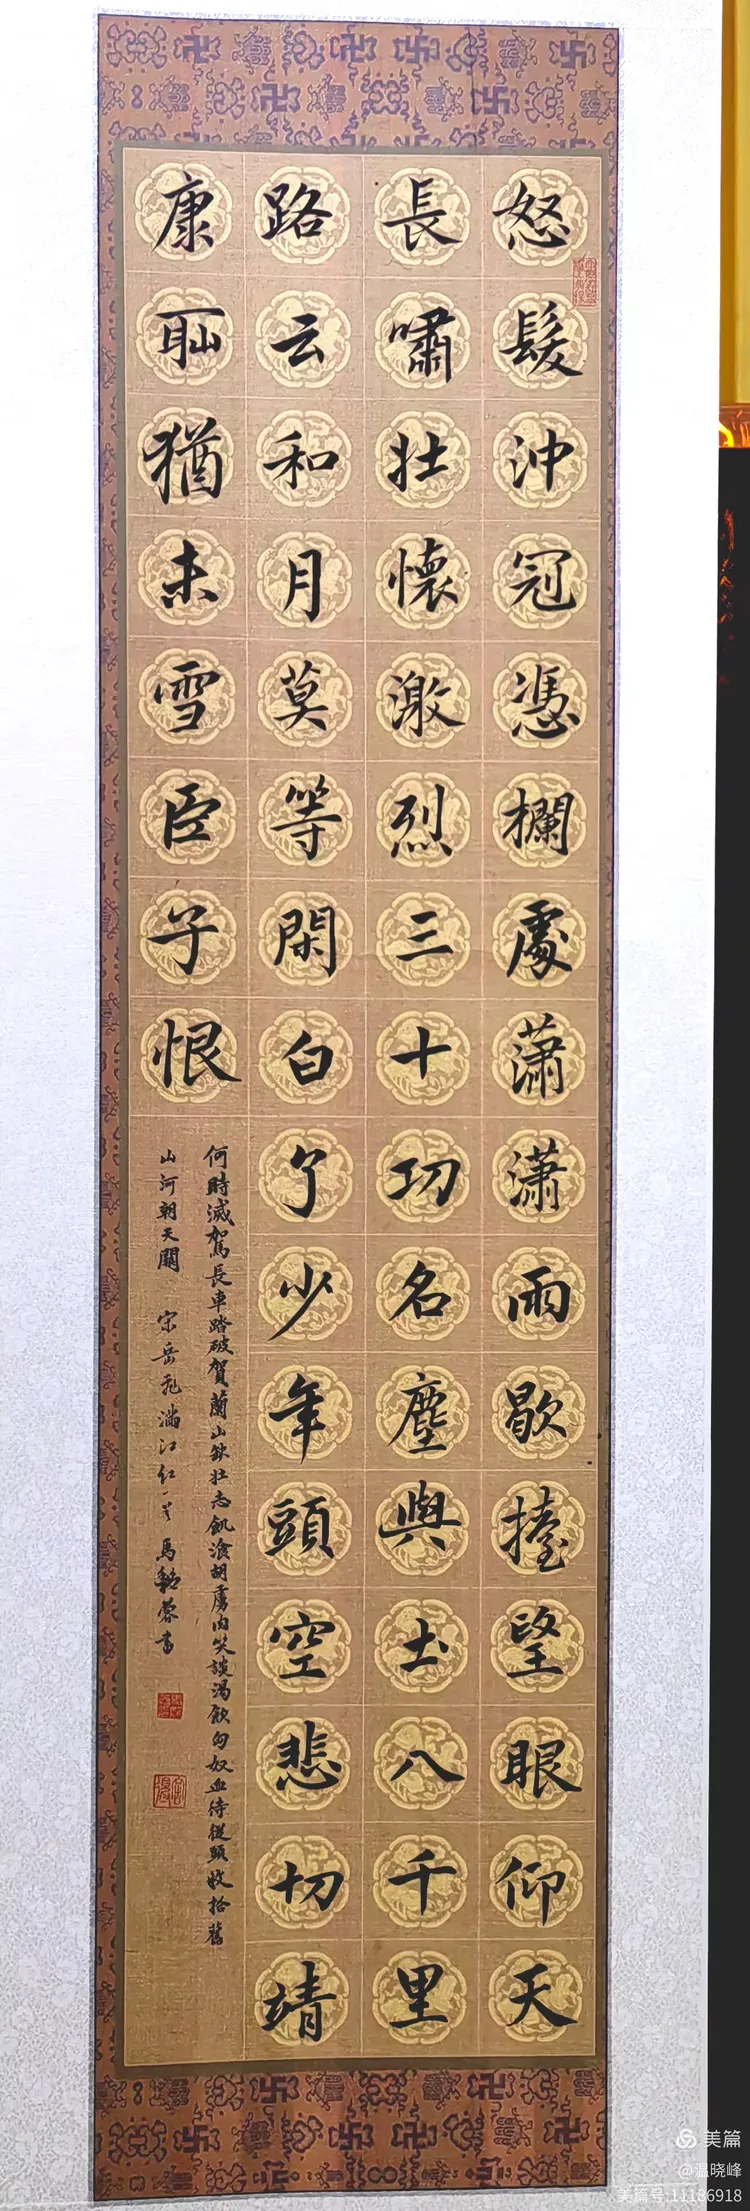 怒髮沖冠憑欄處瀟瀟雨歇擡望眼仰天
長嘯壯懷激烈三十功名塵與土八千里
路云和月莫等閑白了少年頭空悲切靖
康耻猶未雪臣子恨
何時滅駕長車踏破賀蘭山缺壯志飢湌胡虜肉笑談渴飲匈奴血待從頭收拾舊
山河朝天闕 宋岳飛滿江红一首 馬銘蓉書
美篇
@温晓峰
美篇号:11186918